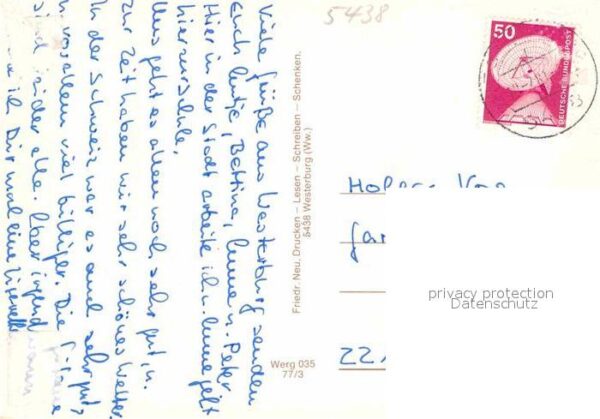 Viele Grüße aus Westerburg senden
Euch Antje, Bettina, Anne u. Peter
Hier in der Stadt arbeite ich u. Anne geht
hier zur Schule.
Uns geht es allen noch sehr gut, u.
zur Zeit haben wir sehr schönes Wetter.
In der Schweiz war es auch sehr gut,
vorallem viel billiger. Die
sind leider alle. Aber irgend wann
ich Dir mal eine
5438
Friedr. Neu. Drucken – Lesen – Schreiben – Schenken.
5438 Westerburg (Ww.)
Werg 035
77/3
50
DEUTSCHE BUNDESPOST
22
privacy protection
Datenschutz